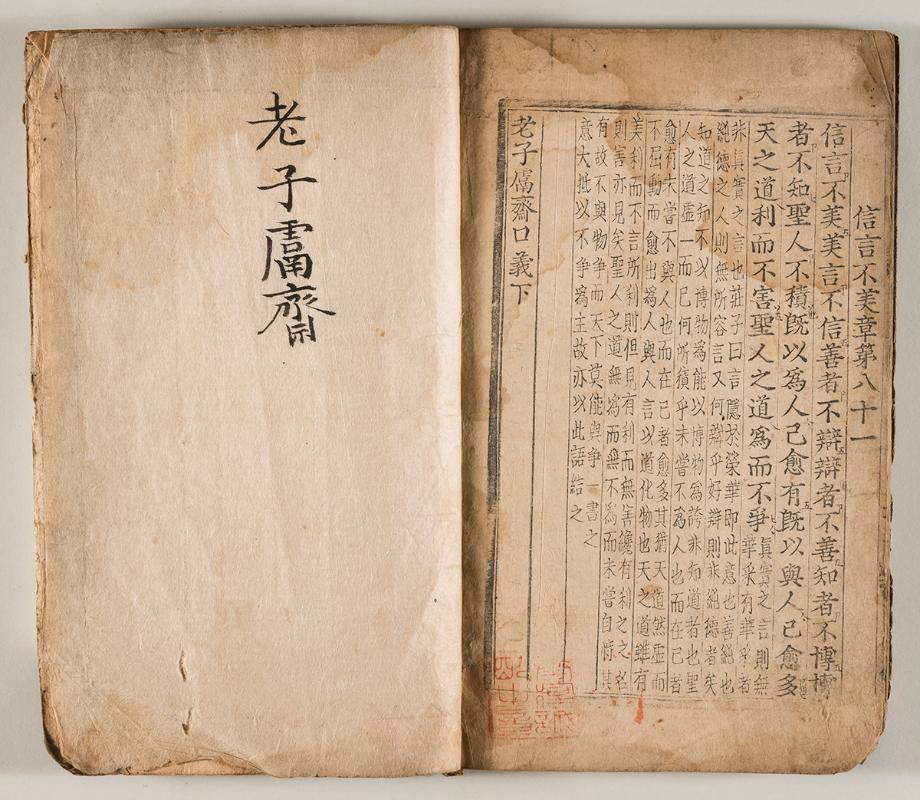 信言不美章第八十一
信言不美美言不信善者不辯辯者不善知者不博博
者不知聖人不積既以爲人己愈有既以與人己愈多
天之道利而不害聖人之道爲而不爭
真實之言則無
華采有華采者
非真實之言也莊子曰言隱於榮華即此意也善純也
純德之人則無所容言又何辯乎好辯則非純德者矣
知道之知不以博物爲能以博物爲誇非知道者也聖
人之道虛一而已何所積乎未嘗不爲人也而在己者
愈有未嘗不與人也而在己者愈多其猶天道然虛而
不屈動而愈出爲人與人言以道化物也天之道雖有
美利而不言所利則但則有利而無害纔有利之之名
則害亦見矣聖人之道無爲而無不爲而未嘗自恃其
有故不與物爭而天下莫能與爭一書之
意大抵以不爭爲主故亦以此語結之
老子鬳齋口義下
老子鬳齋